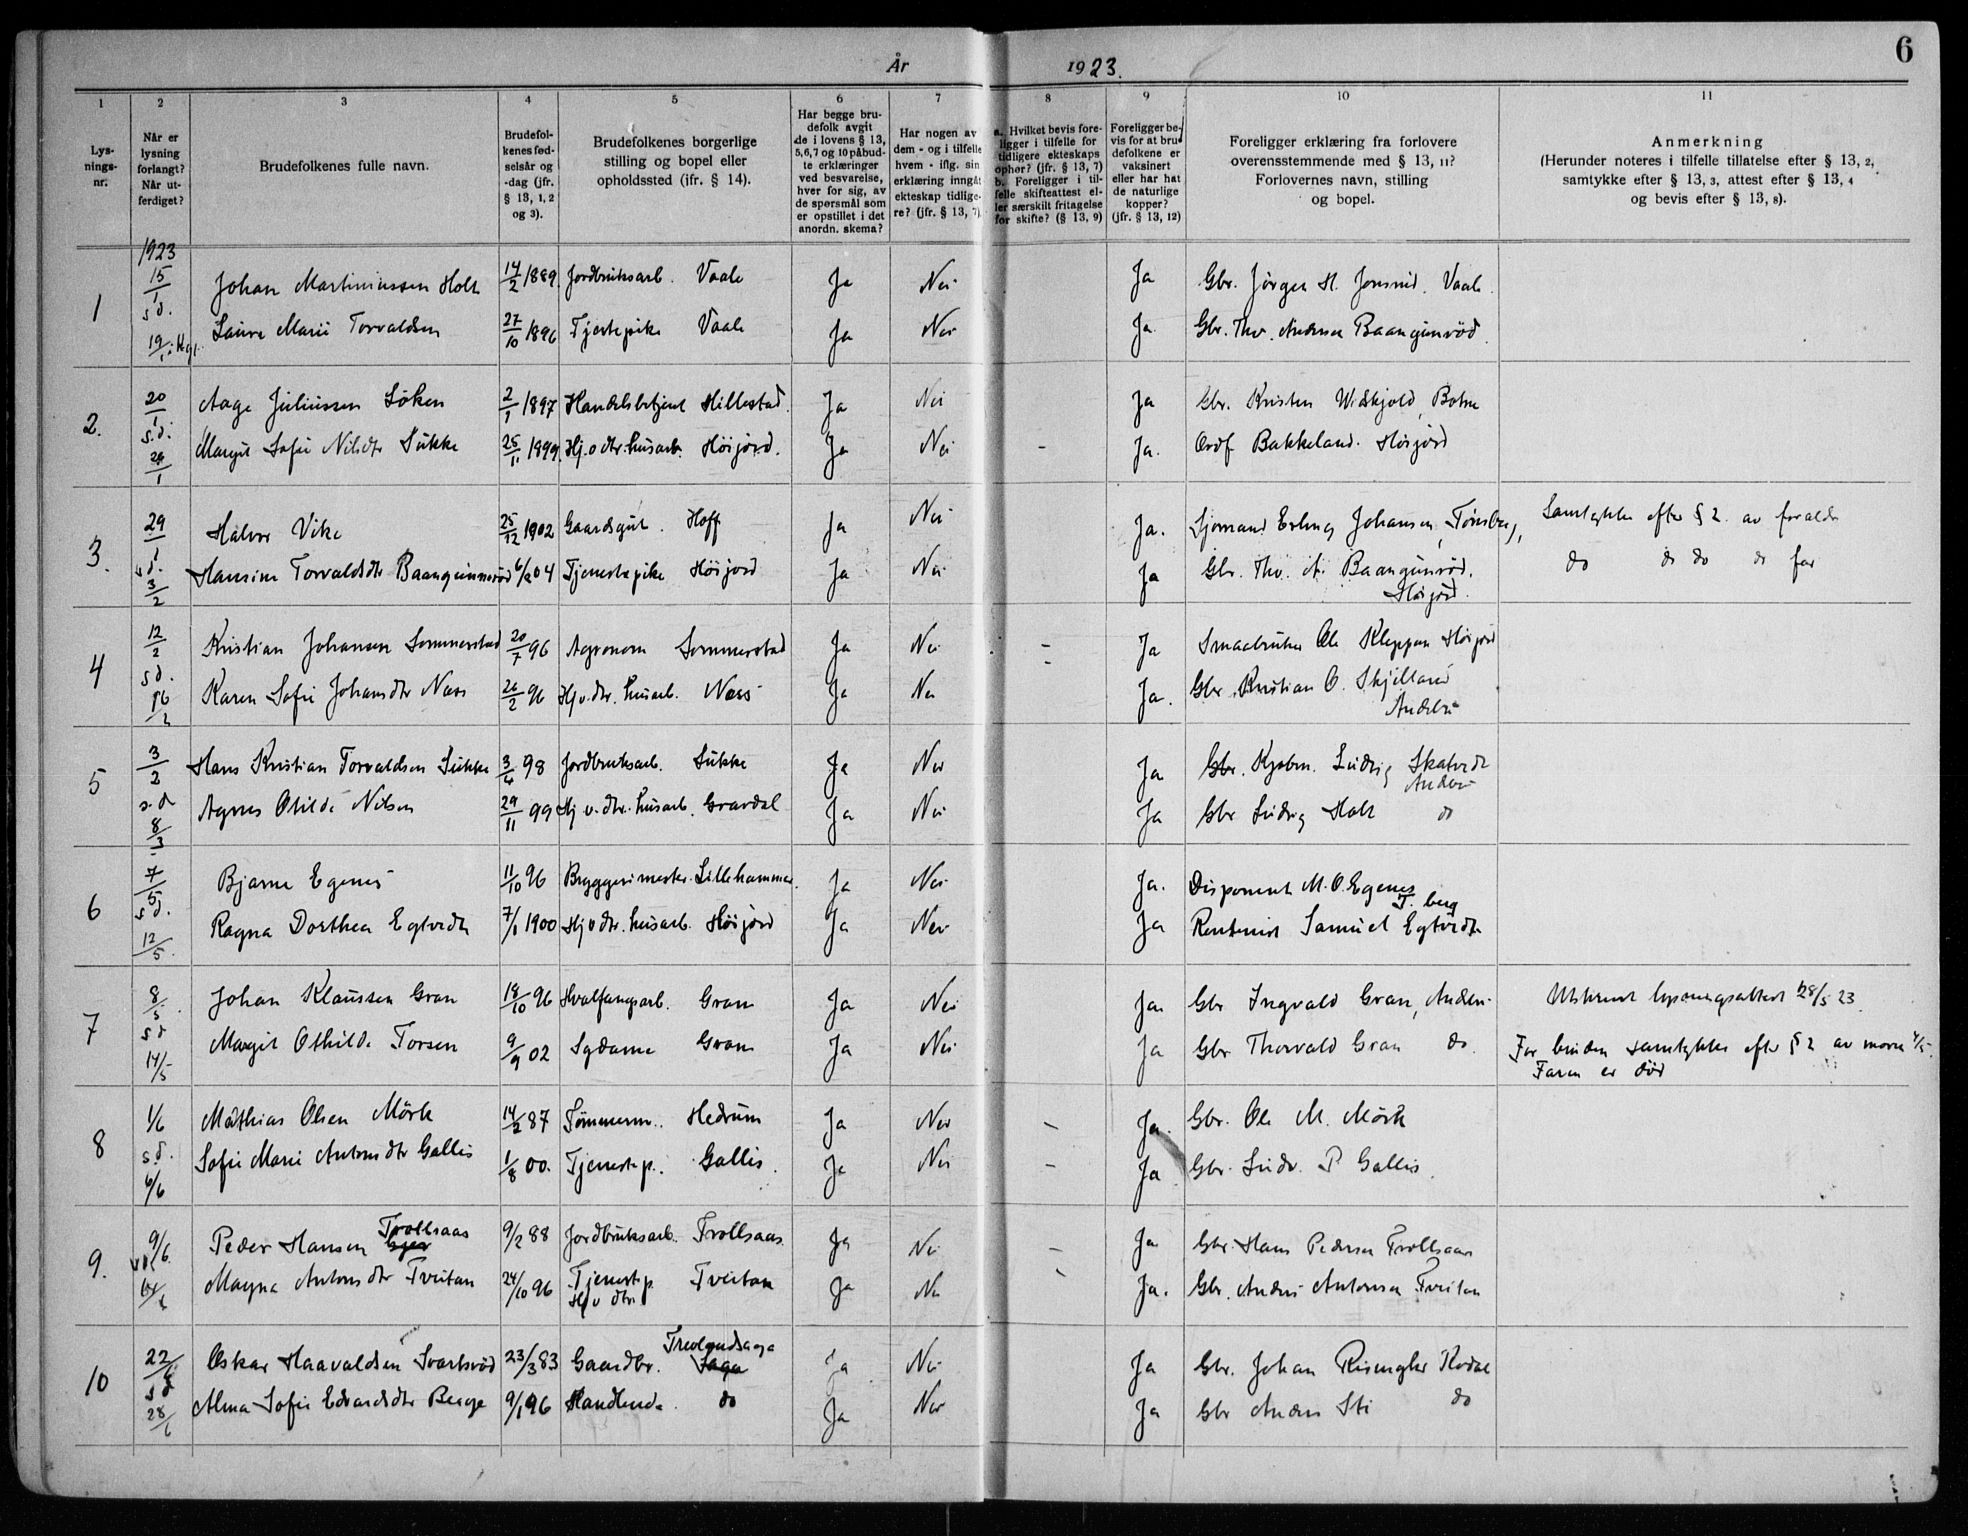 År 1923.
6
1 2 3 4 5 6 7 8 9 10 11
Lysnings-nr.
Når er lysning forlangt? Når utferdiget?
Brudefolkenes fulle navn.
Brudefolkenes fødselsår og -dag (jfr. § 13, 1, 2 og 3).
Brudefolkenes borgerlige stilling og bopel eller opholdssted (jfr. § 14).
Har begge brudefolk avgit de i lovens § 13, 5, 6, 7 og 10 påbudte erklæringer ved besvarelse, hver for sig, av de spørsmål som er opstillet i det anordn. skema?
Har nogen av dem - og i tilfelle hvem - iflg. sin erklæring inngåt ekteskap tidligere? (jfr. § 13, 7).
a. Hvilket bevis foreligger i tilfelle for tidligere ekteskaps ophør? (jfr. § 13, 7) b. Foreligger i tilfelle skifteattest eller særskilt fritagelse for skifte? (§ 13, 9)
Foreligger bevis for at brudefolkene er vaksinert eller har hat de naturlige kopper? (jfr. § 13, 12)
Foreligger erklæring fra forlovere overensstemmende med § 13, 11? Forlovernes navn, stilling og bopel.
Anmerkning
(Herunder noteres i tilfelle tillatelse efter § 13, 2, samtykke efter § 13, 3, attest efter § 13, 4 og bevis efter § 13, 8).
1923
1 15/1 Johan Martiniussen Holt 14/2 1889. Jordbruksarb. Vaale Ja Nei Ja Gbr. Jørgen H. Jonsrud, Vaale.
s.d. 19/1 Laura Marie Torvaldsen 27/10 1896 Tjenstepike Vaale Ja Nei Ja Gbr. Thv. Andersen Baangunrød.
2. 20/1 Aage Juliussen Søken 2/1 1897 Handelsbetjent Hillestad. Ja Nei Ja Gbr. Kristen Widskjold, Botne
s.d. 24/1 Margit Sofie Nilsdtr Sukke 25/11 1899. Hj.v.dtr. husarb. Høijord. Ja Nei - Ja. Ordf Bakkeland. Høijord
3. 29/1 Halvor Vike 25/12 1902 Gaardsgut. Hoff Ja Nei Ja. Sjømand Erling Johansen, Tønsberg, Samtykke efter § 2 av foraldr
s.d. 3/2 Hansine Torvaldsdtr Baangunnerød 6/2 04 Tjenestepike Høijord Ja Nei Ja Gbr. Thv. A. Baangunrød. Høijord. do do do do far
4 12/2 Kristian Johansen Sommerstad 20/7 96 Agronom Sommerstad Ja Nei - Ja Smaabruker Ole Kleppan Høijord
s.d. 16/2 Karen Sofie Johansdtr Næss 26/2 96 Hj.v.dtr. husarb. Næss Ja Nei - Ja. Gbr. Kristian O. Skjelland Andebu
5 3/2 Hans Kristian Torvaldsen Sukke 3/4 98 Jordbruksarb. Sukke Ja Nei Ja Gbr. Kjøbm. Ludvig Skatvedt Andebu
s.d 8/3 Agnes Otilde Nilsen 29/11 99 Hj.v.dtr. husarb. Gravdal Ja Nei Ja Gbr Ludvig Holt do
6 7/5 Bjarne Egenes 11/10 96 Bryggerimester. Lillehammer. Ja Nei Ja. Disponent M. O. Egenes T. berg
s.d. 12/5. Ragna Dorthea Egtvedt 7/1 1900 Hj v dtr. husarb. Høijord Ja Nei Ja Rentenist Samuel Egtvedt
7 8/5. Johan Klaussen Gran 18/10 96 Hvalfangerarb. Gran Ja Nei Ja. Gbr Ingvald Gran, Andebu. Utskrevet lysningsattest 28/5 23.
s d 14/5 Margit Othilde Torsen 9/9 02 Sydame Gran Ja Nei Ja Gbr Thorvald Gran do. For bruden samtykke efter § 2 av moren 4/5.
Faren er død
8 1/6 Mathias Olsen Mörk 14/2 87 Tømmerm.. Hedrum Ja Nei - Ja. Gbr. Ole M. Mörk
s.d. 6/6 Sofie Marie Antonsdtr Gallis 1/8 00. Tjenestp.. Gallis. Ja Nei - Ja Gbr. Ludv. P Gallis.
9. 9/6 Peder Hansen Trollsaas 9/2 88 Jordbruksarb. Trollsaas. Ja Nei - Ja Gbr. Hans Pedersen Trollsaas
14/6 Magna Antonsdtr Tveitan 24/10 96 Tjenestp Hj v dtr. Tveitan Ja Nei - Ja. Gbr. Anders Antonsen Tveitan
10 22/6 Oskar Haavaldsen Svartsrød 23/3 83 Gaardbr. Trevlandsaga Ja Nei Ja Gbr. Johan Risingher Kodal
s d 28/6 Alma Sofie Edvardsdtr Berge 9/1 96 Handlende. do Ja Nei Ja Gbr Anders Sti do